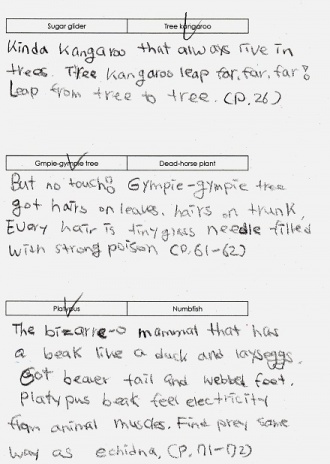 Sugar glider Tree kangaroo
Kinda Kangaroo that always live in
trees. Tree Kangaroo leap far, far, far!
Leap from tree to tree. (P.26)
Gmpie-gympie tree Dead-horse plant
But no touch! Gympie-gympie tree
got hairs on leaves, hairs on trunk,
Every hair is tiny glass needle filled
with strong poison (P.61-62)
Platypus Numbfish
The bizarre-o mammal that has
a beak like a duck and lays eggs.
Got beaver tail and webbed feet.
Platypus beak feel electricity
from animal muscles. Find prey same
way as echidna, (P.71-72)